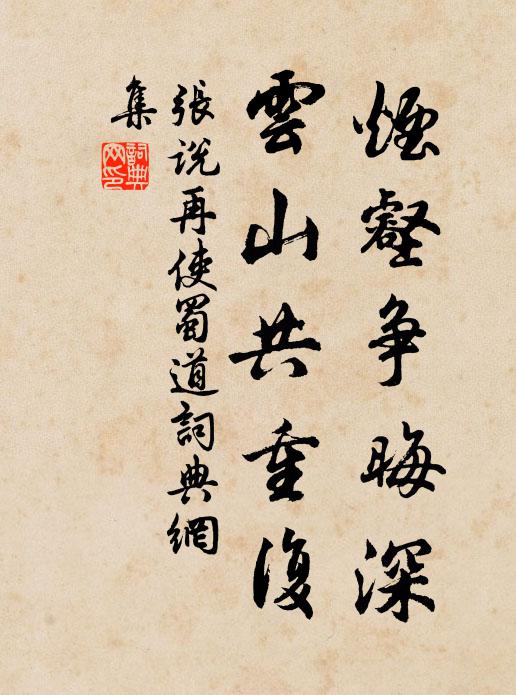 煙壑争晦深
雲山共重復
張說再使蜀道詞典網
集
詞典
网印